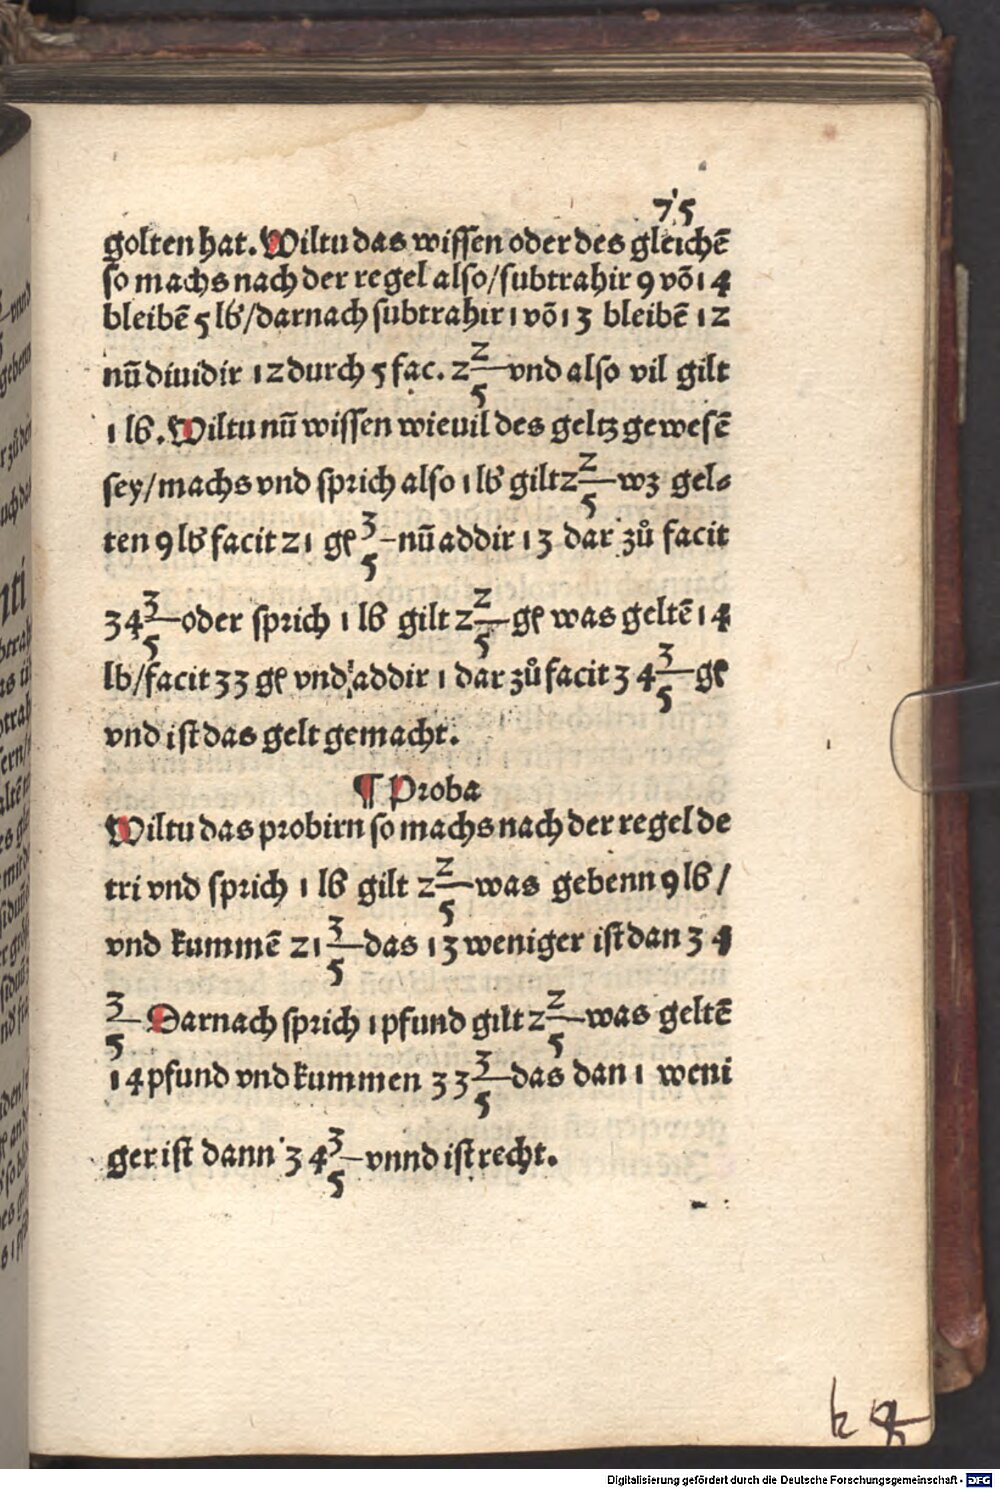 75
golten hat. Wiltu das wissen oder des gleichē
so machs nach der regel also/subtrahir 9 vō 14
bleibē 5 lb/darnach subtrahir 1 vō 13 bleibē 12
nū diuidir 12 durch 5 fac. 2 2/5 vnd also vil gilt
1 lb. Wiltu nū wissen wieuil des geltz gewesē
sey/machs vnd sprich also 1 lb gilt 2 2/5 wz gel-
ten 9 lb facit 21 gl 3/5 nū addir 13 dar zů facit
34 3/5 oder sprich 1 lb gilt 2 2/5 gl was geltē 14
lb/facit 33 gl vnd addir 1 dar zů facit 34 3/5 gl
vnd ist das gelt gemacht.
¶ Proba
Wiltu das probirn so machs nach der regel de
tri vnd sprich 1 lb gilt 2 2/5 was gebenn 9 lb/
vnd kummē 21 3/5 das 13 weniger ist dan 34
3/5 Darnach sprich 1 pfund gilt 2 2/5 was geltē
14 pfund vnd kummen 33 3/5 das dan 1 weni
ger ist dann 34 3/5 vnnd ist recht.
k
Digitalisierung gefördert durch die Deutsche Forschungsgemeinschaft - DFG